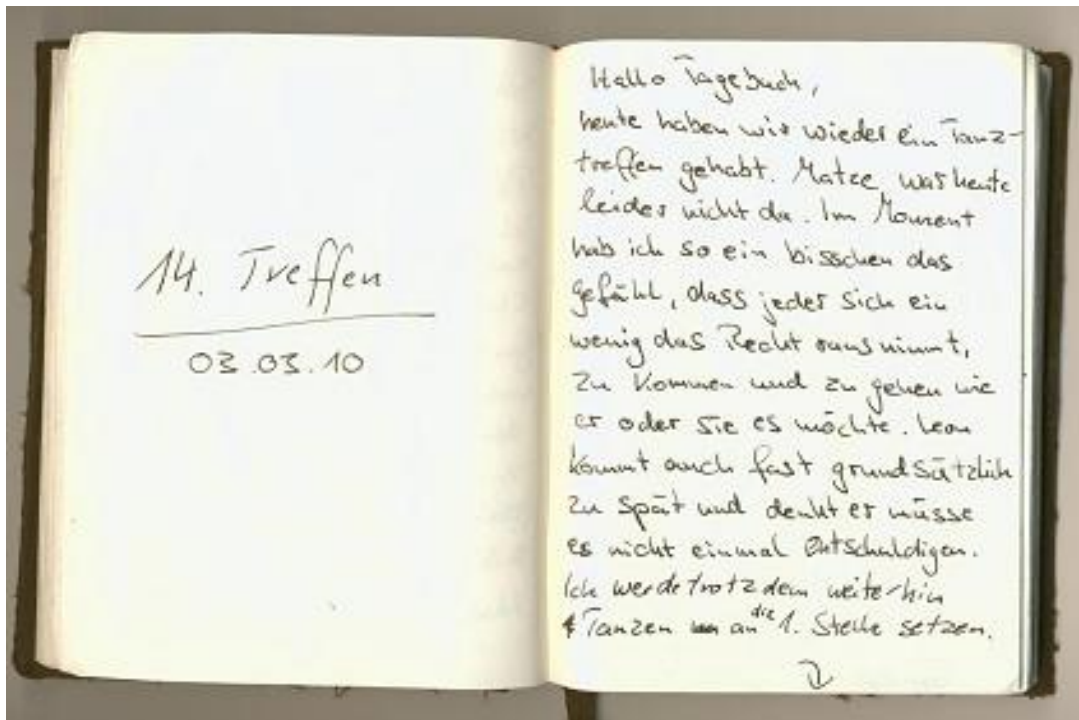 14. Treffen
03.03.10
Hallo Tagebuch,
heute haben wir wieder ein Tanz-
treffen gehabt. Matze war heute
leider nicht da. Im Moment
hab ich so ein bisschen das
Gefühl, dass jeder sich ein
wenig das Recht rausnimmt,
zu kommen und zu gehen wie
er oder sie es möchte. Leon
kommt auch fast grundsätzlich
zu spät und denkt er müsse
es nicht einmal entschuldigen.
Ich werde trotzdem weiterhin
Tanzen an die 1. Stelle setzen.